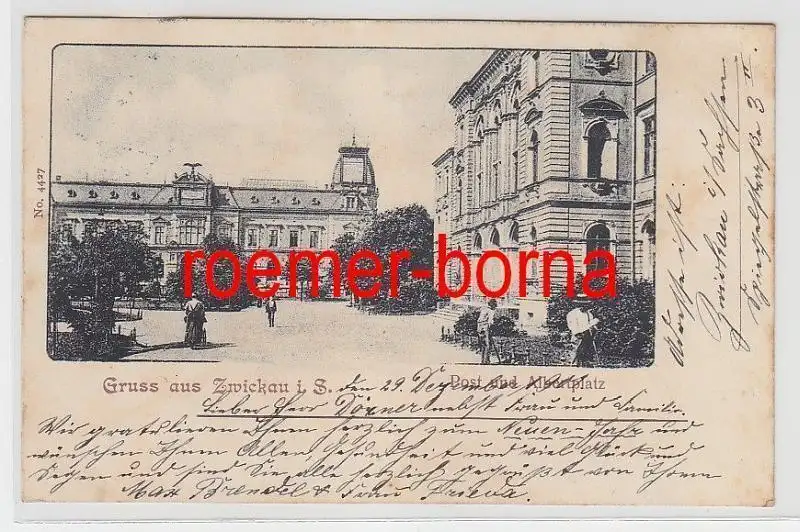 No. 4427
roemer-borna
Gruss aus Zwickau i. S.
Post und Albertplatz
den 29. Dezember
Lieber Herr Dörner nebst Frau und Familie.
Wir gratulieren Ihnen herzlich zum Neuen-Jahr und
wünschen Ihnen Allen Gesundheit und viel Glück und
Segen und sind Sie alle herzlich gegrüßt von Ihrem
Max Brendel & Frau Frieda.
Adresse ist:
Zwickau i/Sachsen
3 II.